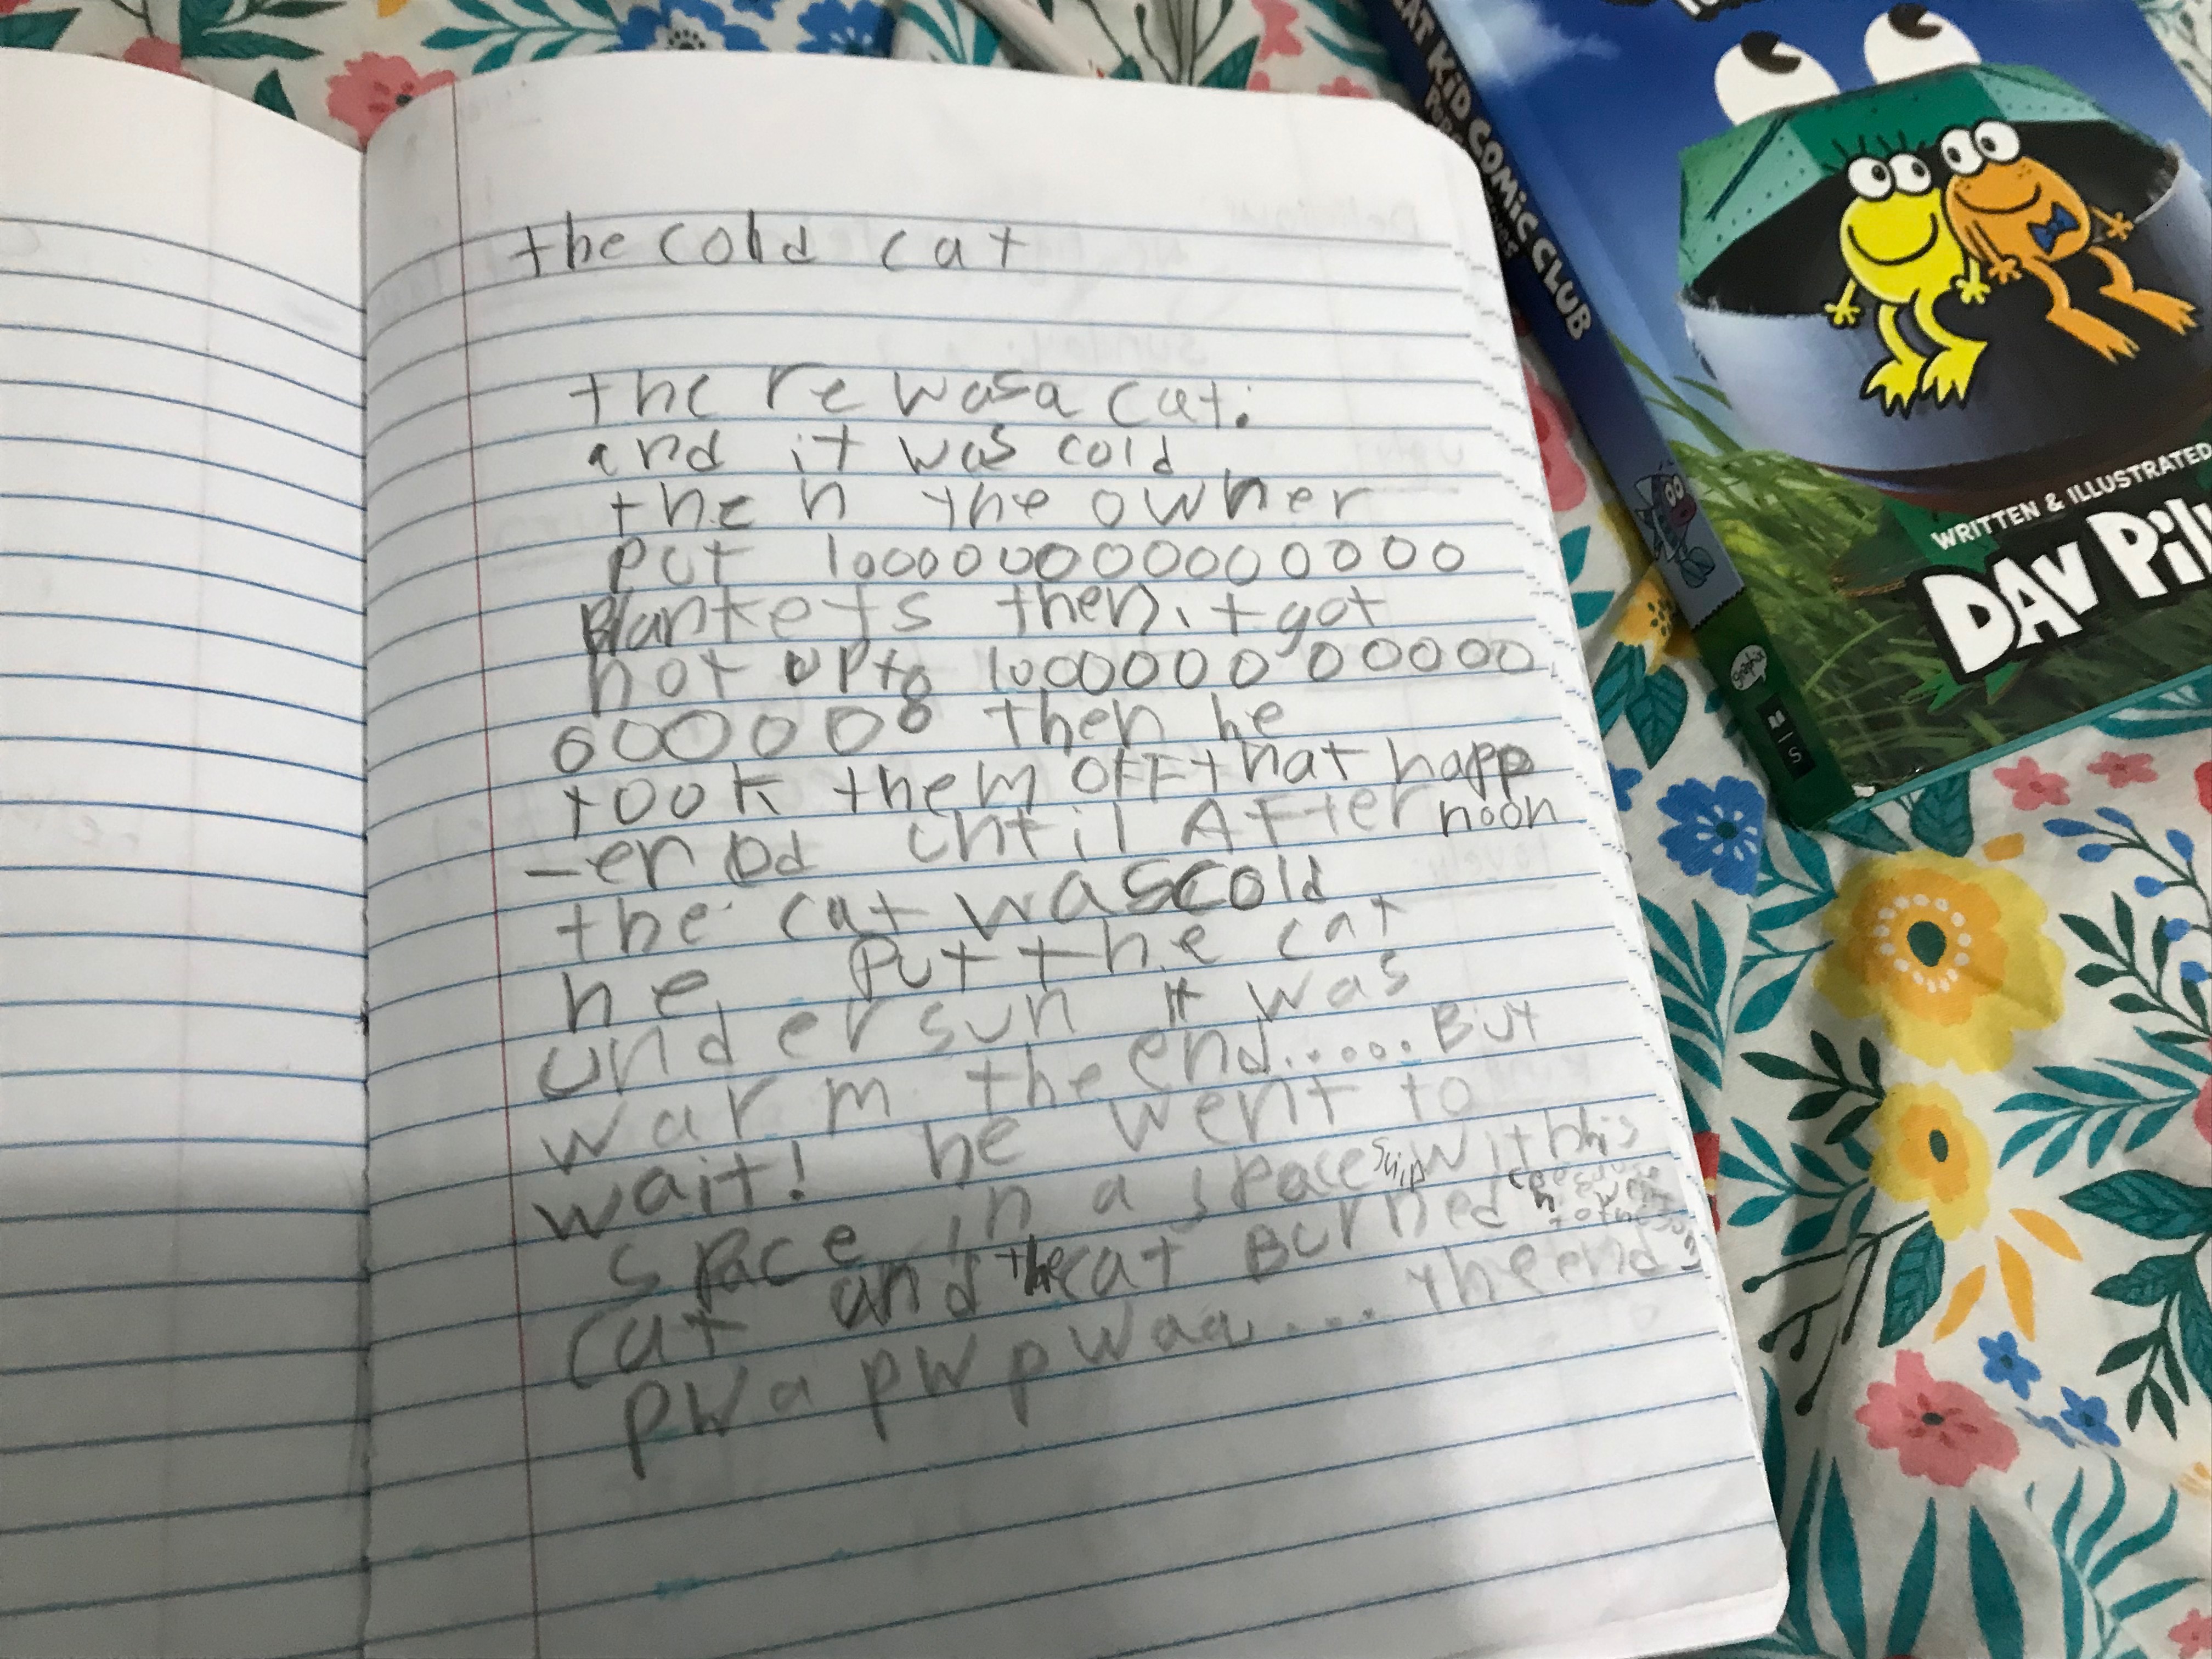 the cold cat
there was a cat.
and it was cold
then the owner
put 1000000000000000
Blankets then it got
hot upto 100000000000
0000000 then he
took them off that happ
-en Dd until Afternoon
the cat was cold
he put the cat
under sun it was
warm the end..... But
wait! he went to
space in a space ship with his
cat and the cat Burned
pwa pwpwaa.... the end
CAT KID COMIC CLUB
WRITTEN & ILLUSTRATED
DAV
graphix